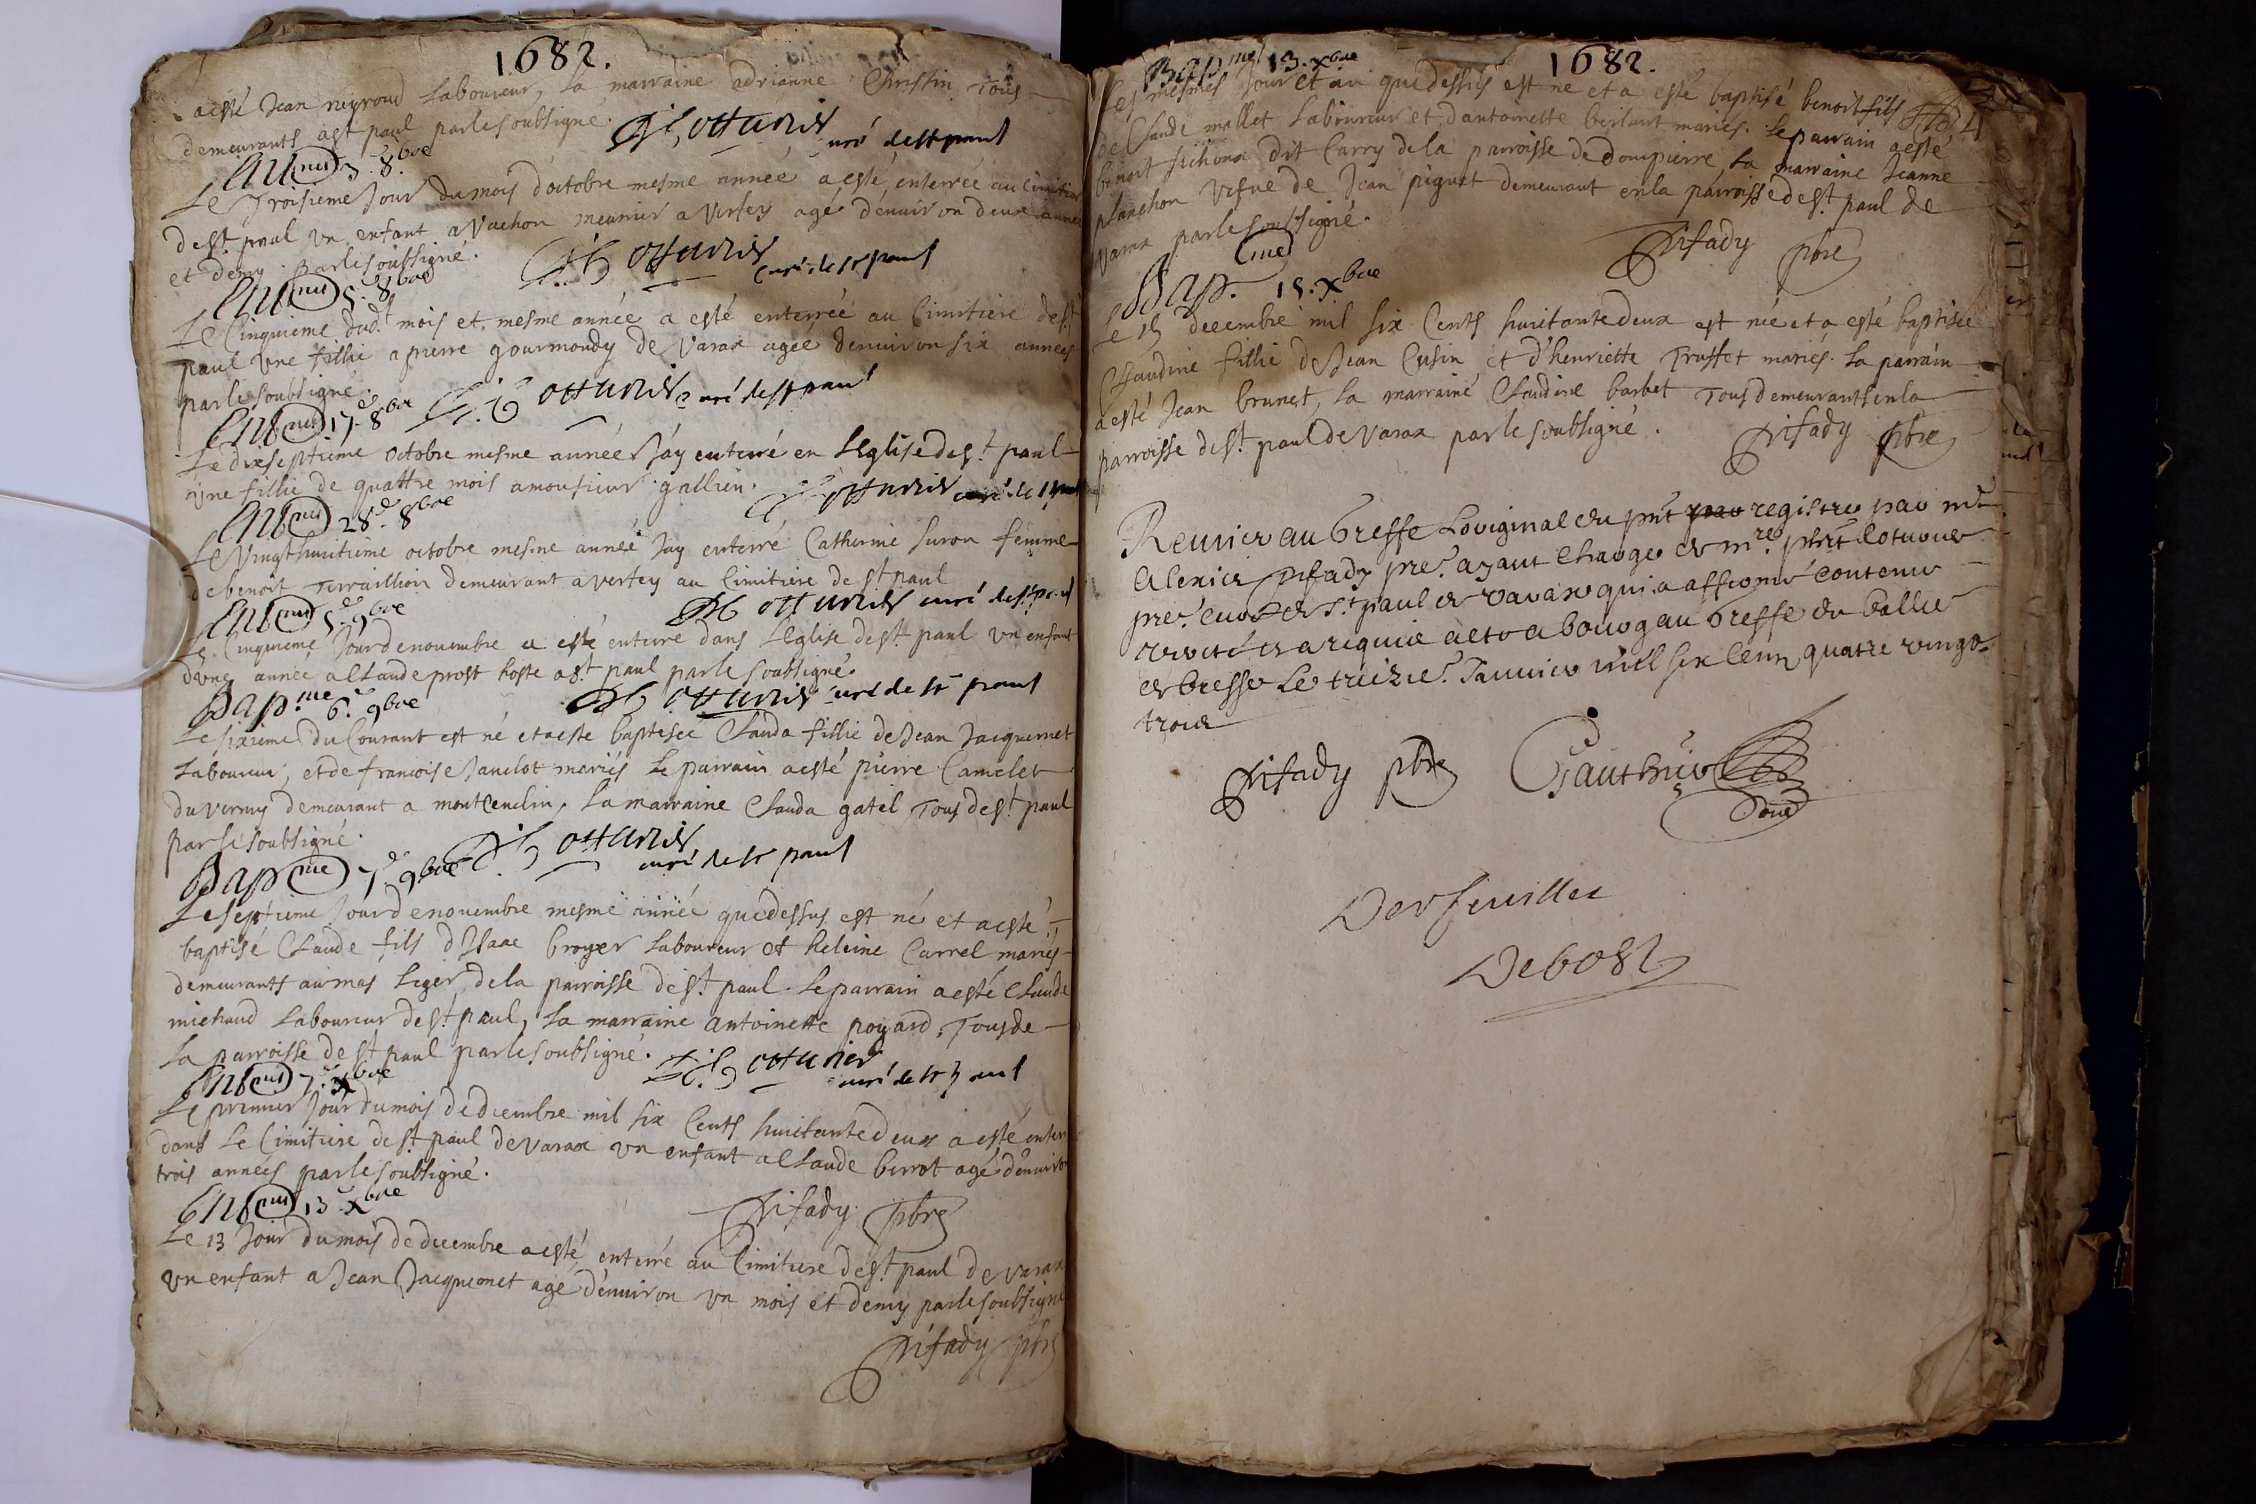 1682.
a esté Jean neyroud Laboureur, La marraine adrianne Chrestin Tous
demeurants a St paul parle soubsigné.
curé de st paul
Ent.ment 3.e 8.bre
Le Troisieme Jour du mois d'octobre mesme année a esté enterrée au Cimitiere
de St. paul vn enfant a Vachon meunier a Vertey agé d'enuiron deux années
et demy parle soubsigné.
curé de st paul
Ent.ment 5.e 8.bre
Le Cinquieme dud.t mois et mesme année a esté enterréé au Cimitiere de St
paul vne fillie a pierre gourmondy de Varax agée denuiron six années
parle soubsigné.
Ent.ment 17.e 8.bre
curé de st paul
Le dixseptieme octobre mesme année J'ay enterré en l'Eglise de St. paul
vne fillie de quattre mois a monsieur gallien.
curé de st paul
Ent.ment 28.e 8.bre
Le Vingthuitieme octobre mesme année Jay enterré Catherine Suron femme
de benoit Terraillion demeurant a vertey au Cimitiere de St paul
Ent.ment 5.e 9.bre
curé de st paul
Le Cinquieme Jour de nouembre a esté enterré dans l'Eglise de St. paul vn enfant
d'vne année a Claude prost hoste a St. paul parle soubsigné.
Bap.me 6.e 9.bre
curé de st paul
Le sixieme du Courant est né et a esté baptisée Clauda fillie de Jean Jacquemet
Laboureur, et de francoise Janelot mariés Le parrain a esté pierre Camelet
du verney demeurant a montCenclin, La marraine Clauda gatel Tous de St. paul
parle soubsigné.
curé de st paul
Bap.me 7.e 9.bre
Le septieme Jour de nouembre mesme année que dessus est né et a esté
baptisé Claude fils d'Isaac broyer Laboureur et heleine Carrel mariés
demeurants au mas Leger de la parroisse de St. paul. Le parrain a esté Claude
michaud Laboureur de St. paul, La marraine antoinette poyard, Tous de
La parroisse de St paul parle soubsigné.
curé de st paul
Ent.ment X.bre
Le premier Jour du mois de decembre mil six Cents huictante deux a esté enter
dans Le Cimitiere de St. paul de Varax vn enfant a Claude berrot agé d'enuiron
trois années parle soubsigné.
Ent.ment 13.e X.bre
Trifady pbre
Le 13 Jour du mois de decembre a esté enterré au Cimitiere de St. paul de Varax
vn enfant a Jean Jacquemet agé d'enuiron vn mois et demy parle soubsigné
Trifady pbre
1682.
Bap.me 13.Xbre
Les mesmes Jour et an que dessus est né et a esté baptisé benoit fils
de Claude mallet Laboureur et d'antoinette berlant mariés. Le parrain a esté
benoit dit Carry de la parroisse de Dompierre La marraine Jeanne
planchon vefve de Jean piguet demeurant en la parroisse de St. paul de
Varax parle soubsigné.
Trifady pbre
Bap.me 15.Xbre
Le 15 decembre mil six Cents huictante deux est née et a esté baptisée
Claudine fillie de Jean Cusin et d'henriette Truffet mariés. La parrain
a esté Jean brunet, La marraine Claudine barbet Tous demeurants en la
parroisse de St. paul de Varax parle soubsigné.
Trifady pbre
Remis au Greffe Loriginal du pnt registre par mre
Trifady pre. ayant charge de mre
pre. curé de St paul de Varax qui a affirmé contenir
a bourg au Greffe du Ballie
de Bresse Le treizie. Januier mil six Cent quatre vingt
trois
Trifady pbre Gauthier
Derfeuilles
Debost